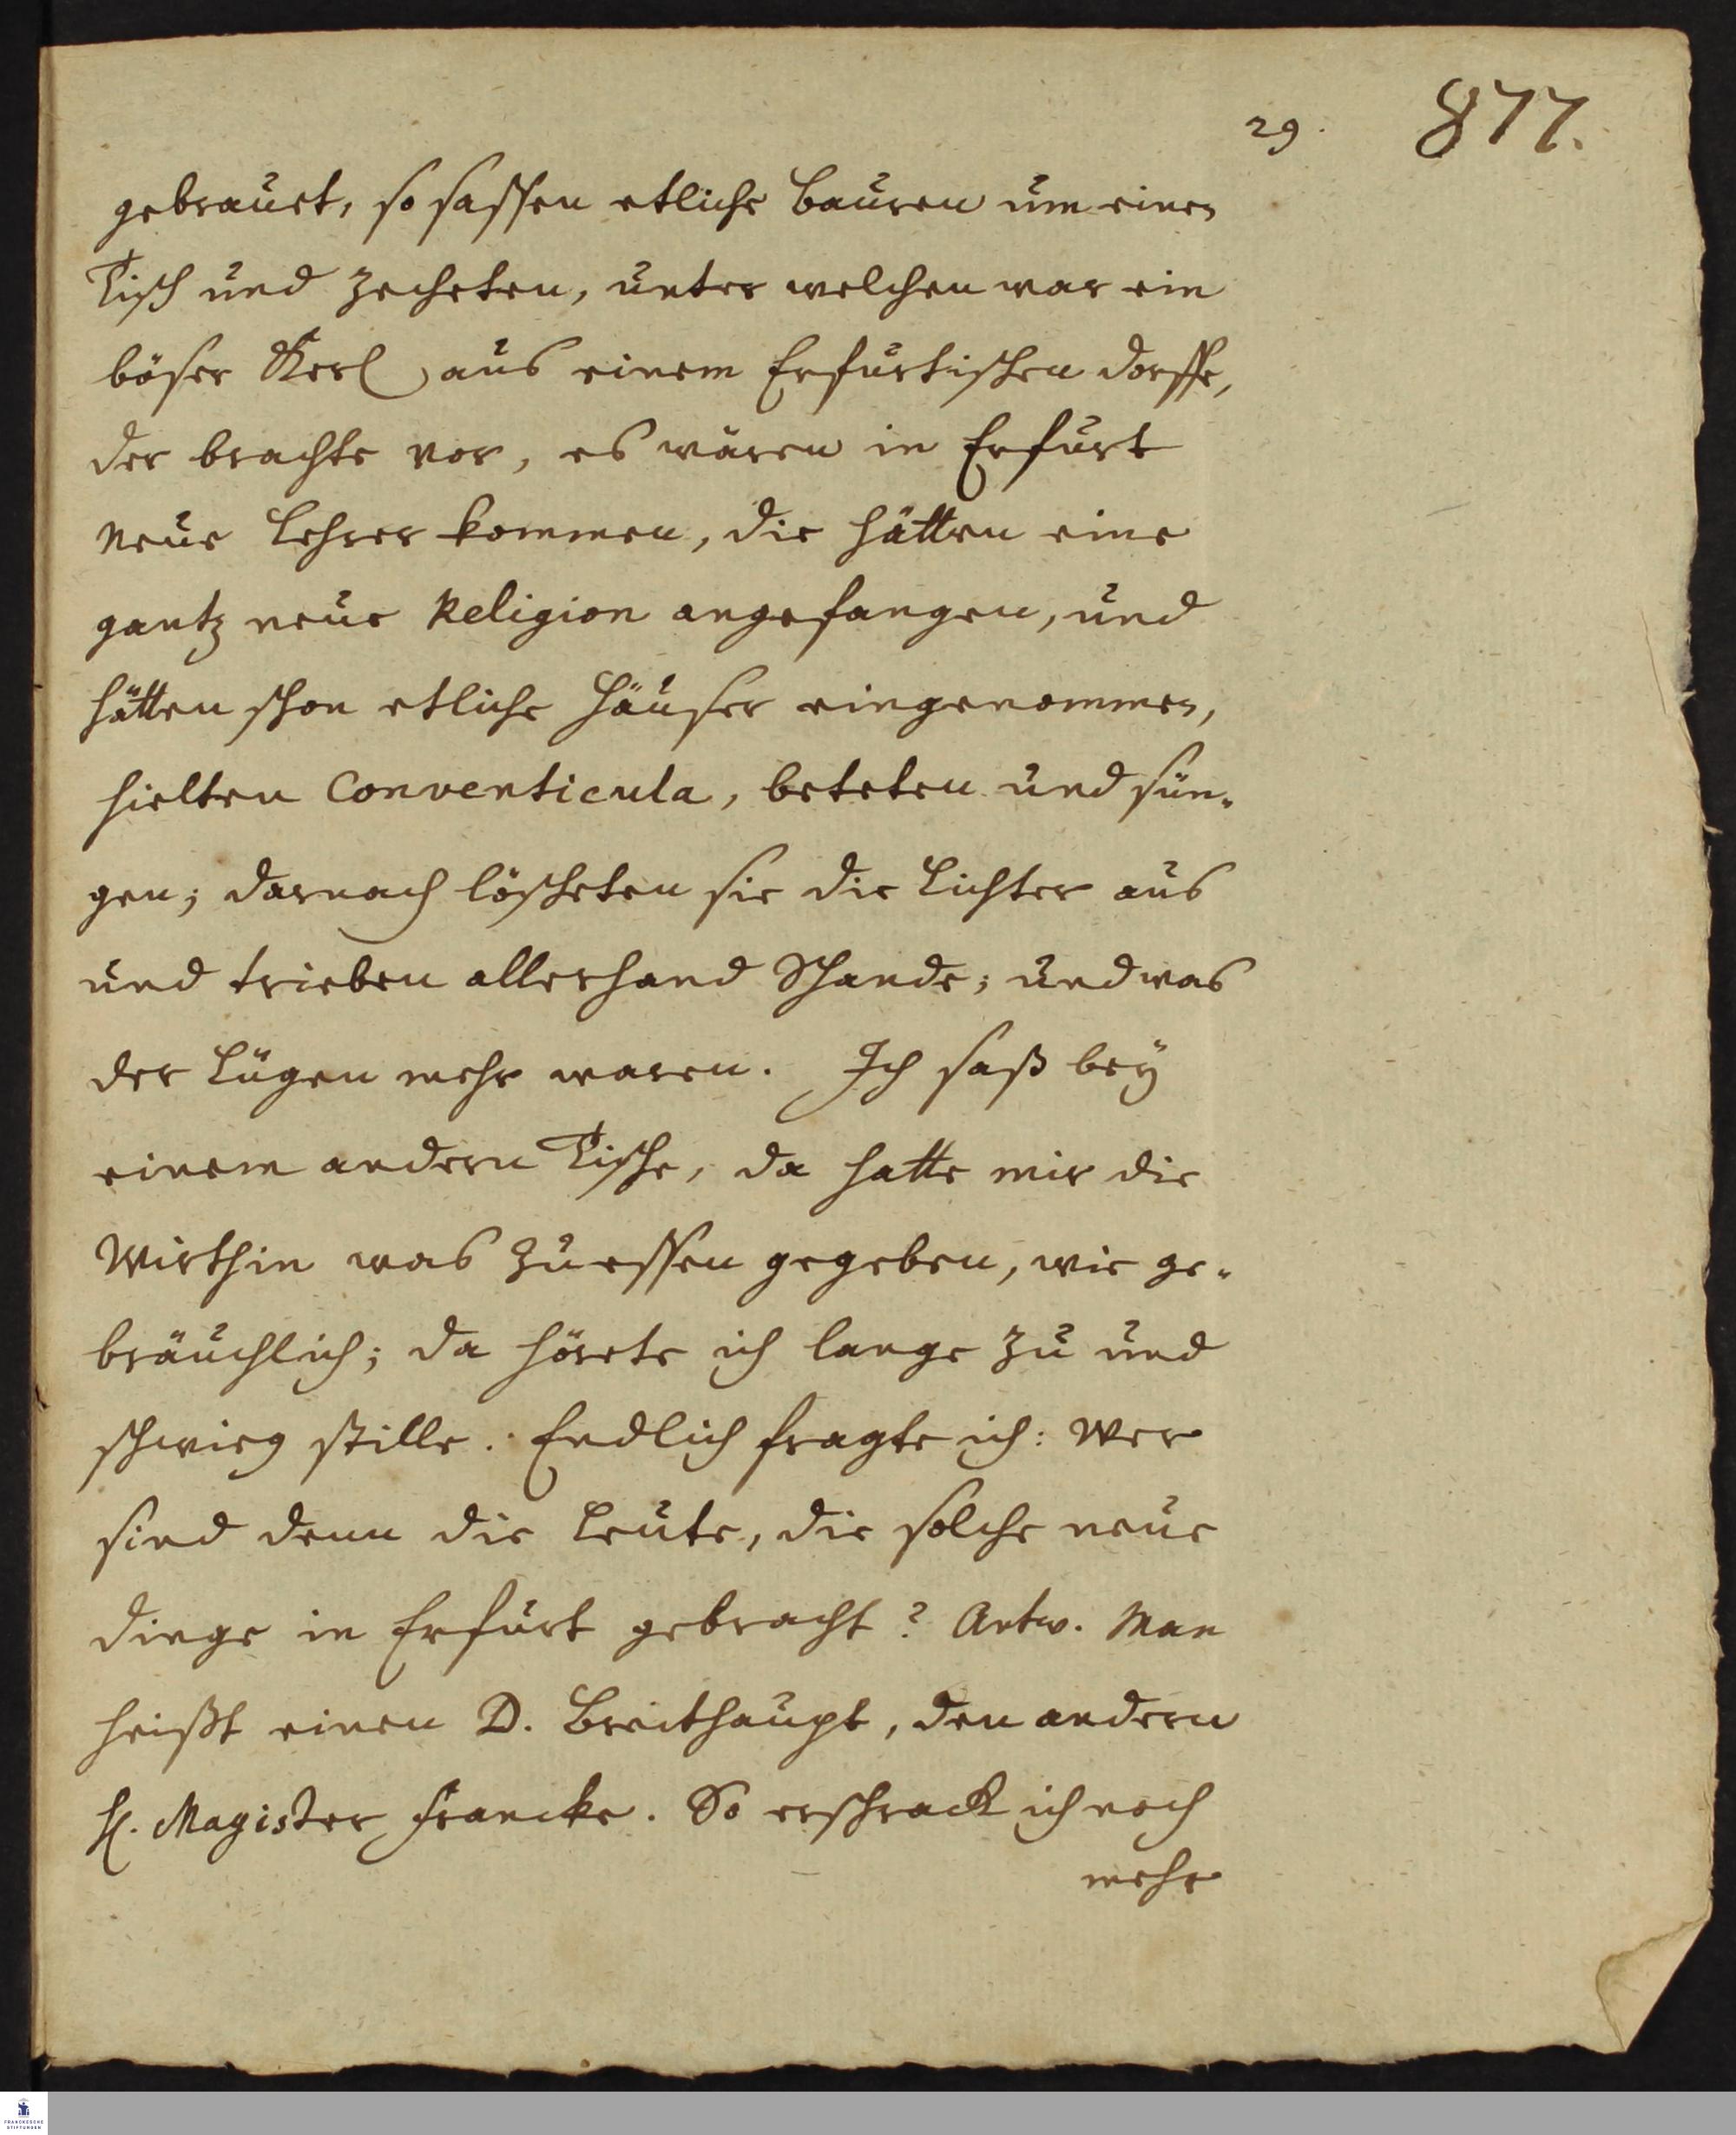 29.
877.
gebrauet, so sassen etliche Bauren um einen
Tisch und zecheten, unter welchen war ein
böser Kerl aus einem Erfurtischen Dorffe,
der brachte vor, es wären in Erfurt
neue Lehrer kommen, die hätten eine
gantz neue Religion angefangen, und
hätten schon etliche Häuser eingenommen,
hielten Conventicula, beteten und sün-
gen; darnach löscheten sie die Lichter aus
und trieben allerhand Schande; und was
der Lügen mehr waren. Ich saß beÿ
einem andern Tische, da hatte mir die
Wirthin was zu essen gegeben, wie ge-
bräuchlich; da hörete ich lange zu und
schwieg stille. Endlich fragte ich: Wer
sind denn die Leute, die solche neue
Dinge in Erfurt gebracht? Antw. Man
heißt einen D. Breithaupt, den andern
H. Magister Francke. So erschrack ich noch
mehr
FRANCKESCHE
STIFTUNGEN